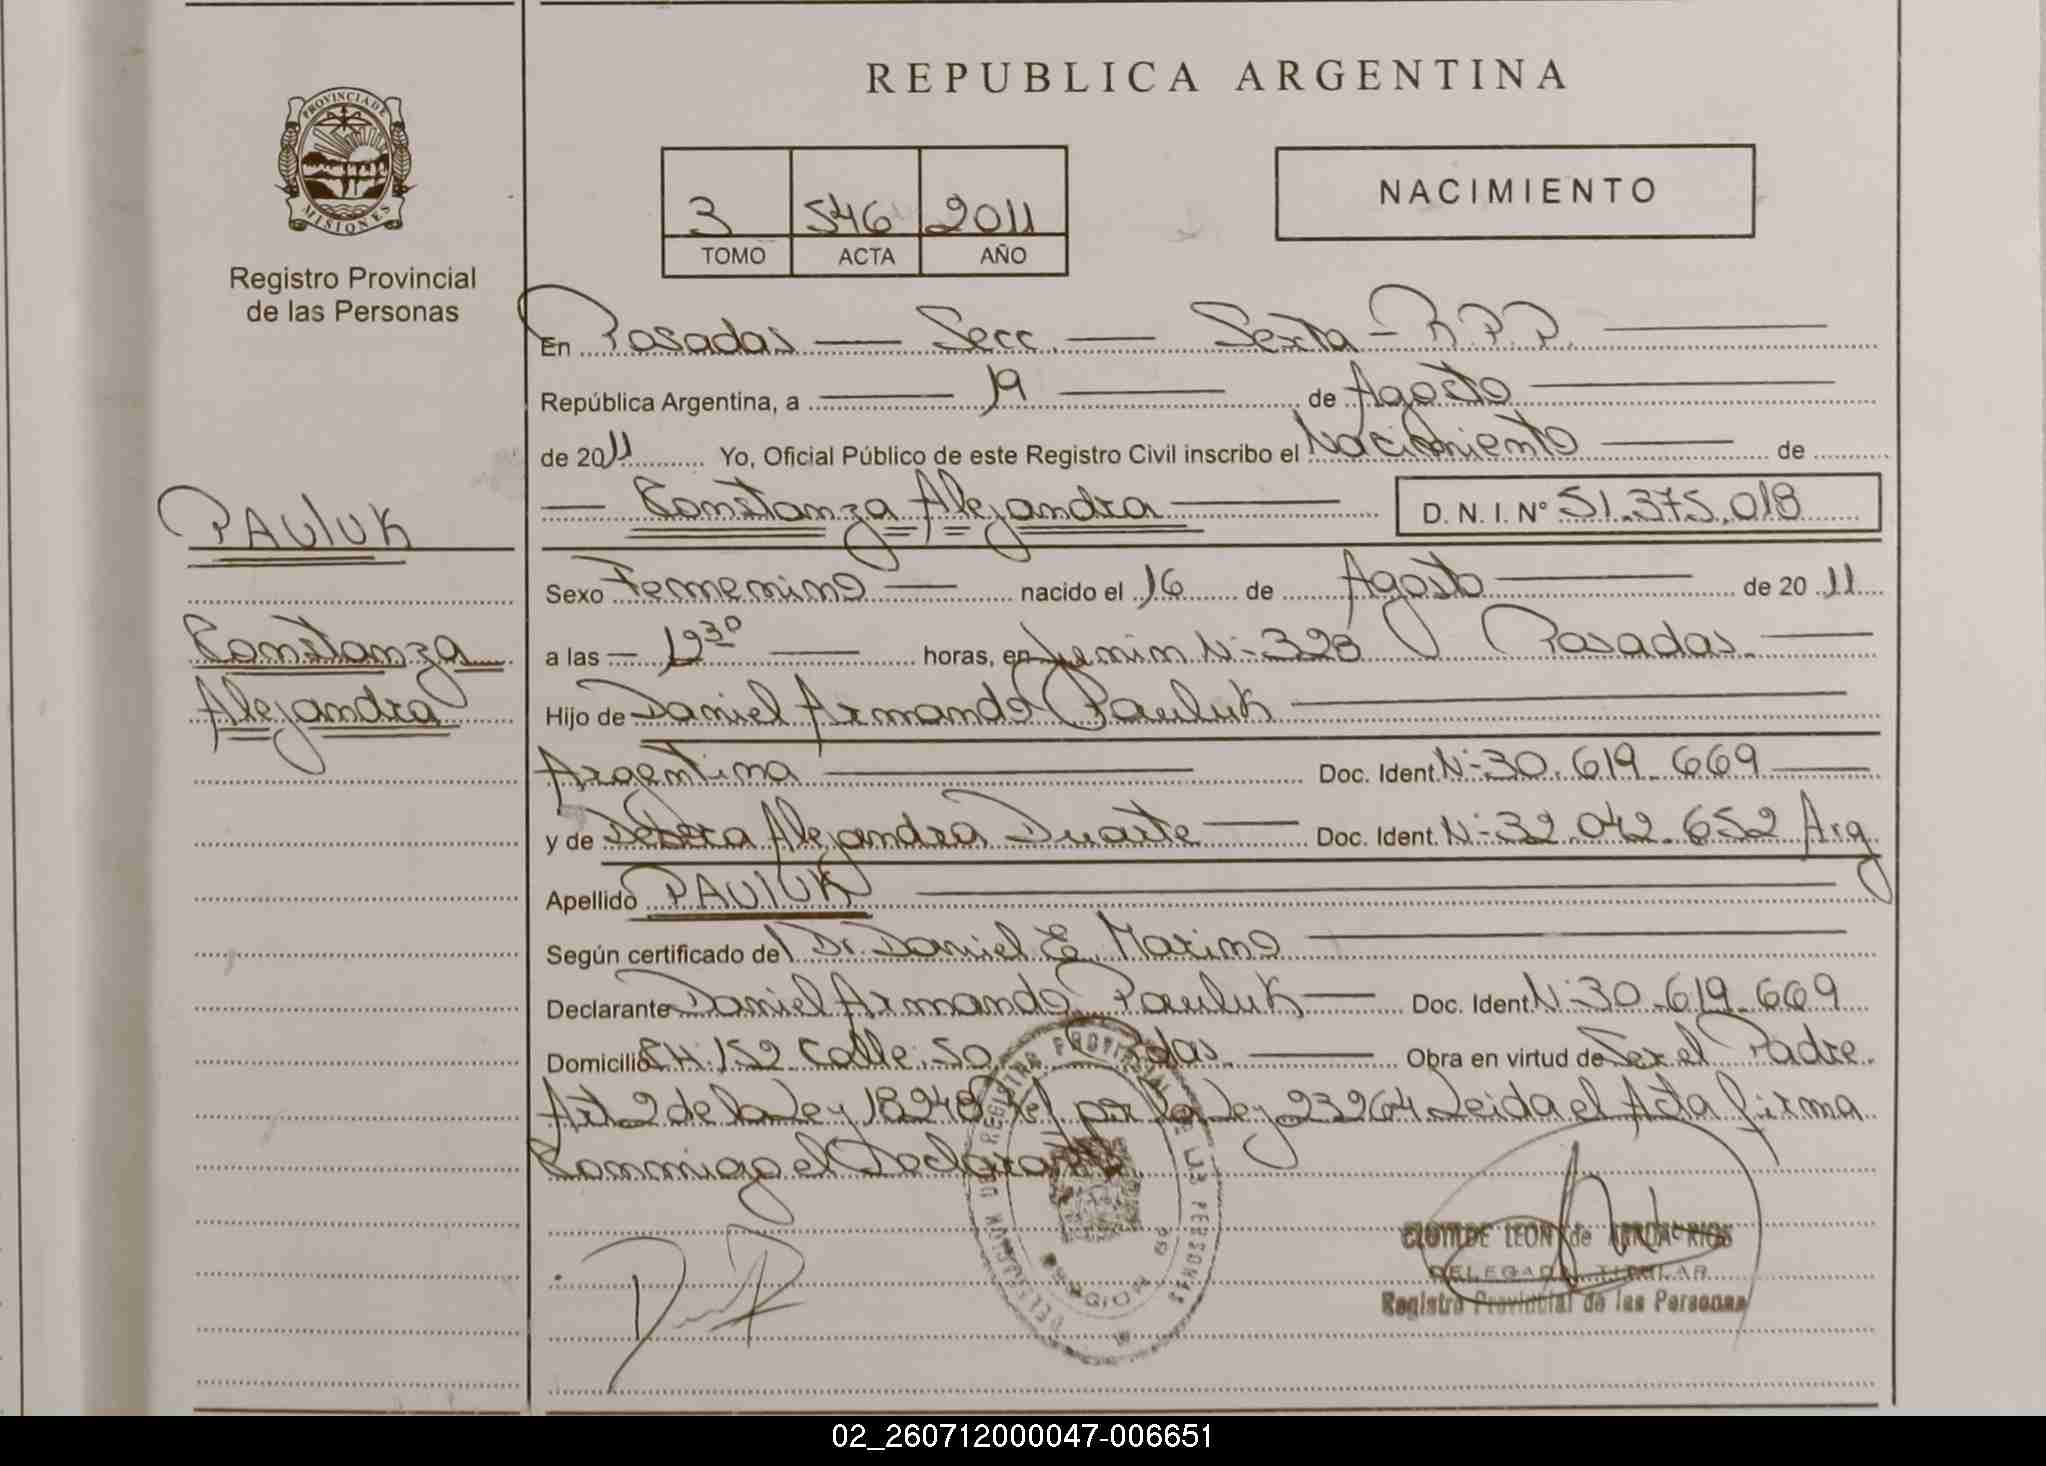 REPUBLICA ARGENTINA
PROVINCIA DE
MISIONES
Registro Provincial
de las Personas
3 546 2011
TOMO ACTA AÑO
NACIMIENTO
En Posadas — Secc. — Sexta - R.P.P.
República Argentina, a 19 de Agosto
de 2011 Yo, Oficial Público de este Registro Civil inscribo el Nacimiento de
Constanza Alejandra D. N. I. Nº 51.375.018
PAULUK
Constanza
Alejandra
Sexo Femenino nacido el 16 de Agosto de 20 11
a las 12 30 horas, en Junin Nº 328 Posadas.
Hijo de Daniel Armando Pauluk
Argentina Doc. Ident. Nº 30.619.669
y de Débora Alejandra Duarte Doc. Ident. Nº 32.042.652 Arg
Apellido PAULUK
Según certificado del Dr. Daniel E. Marino
Declarante Daniel Armando Pauluk Doc. Ident. Nº 30.619.669
Domicilio CH. 152 Calle 50 Pdas. Obra en virtud de Ser el Padre.
Art 2 de la Ley 18248 Ref por la Ley 23264 Leida el Acta firma
Conmigo el Declarante.
REGISTRO PROVINCIAL DE LAS PERSONAS
CLOTILDE LEON de RIOS
DELEGADA TITULAR
Registro Provincial de las Personas
02_260712000047-006651